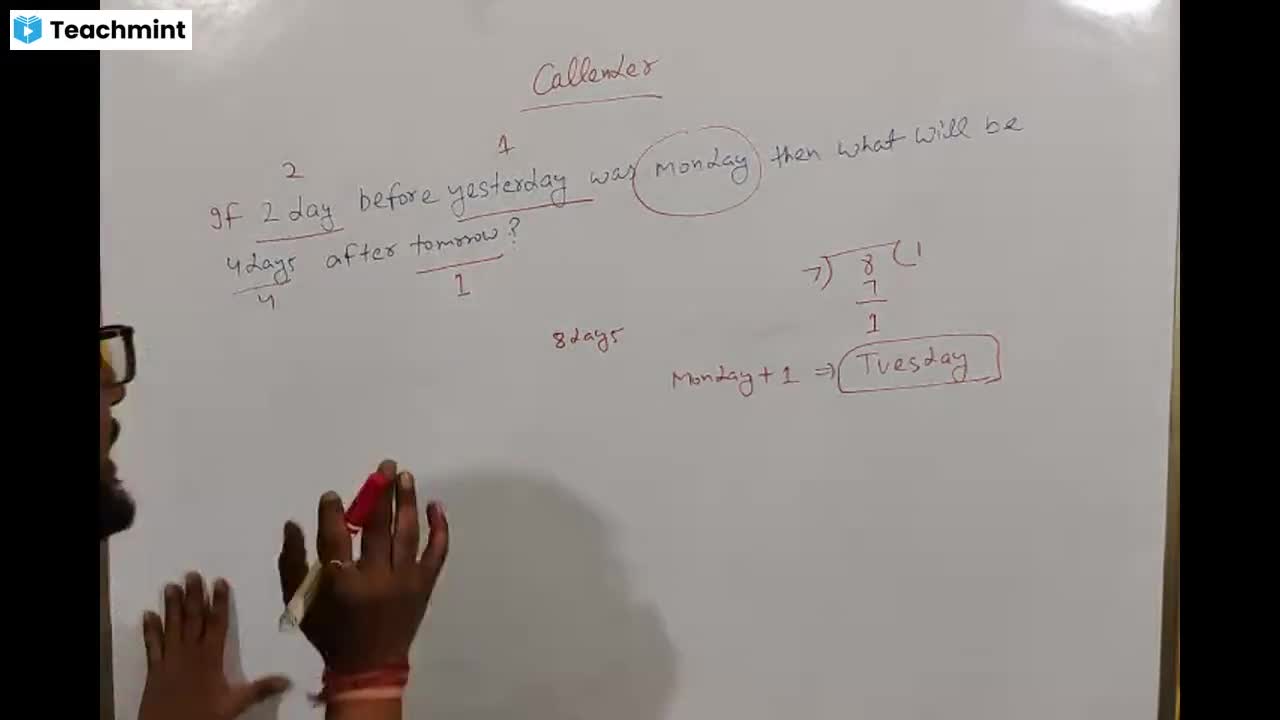 Teachmint
Callender
2 1
If 2 day before yesterday was monday then what will be
4 days after tomorrow?
4 1
7) 8 ( 1
7
1
8 days
Monday + 1 ⇒ Tuesday